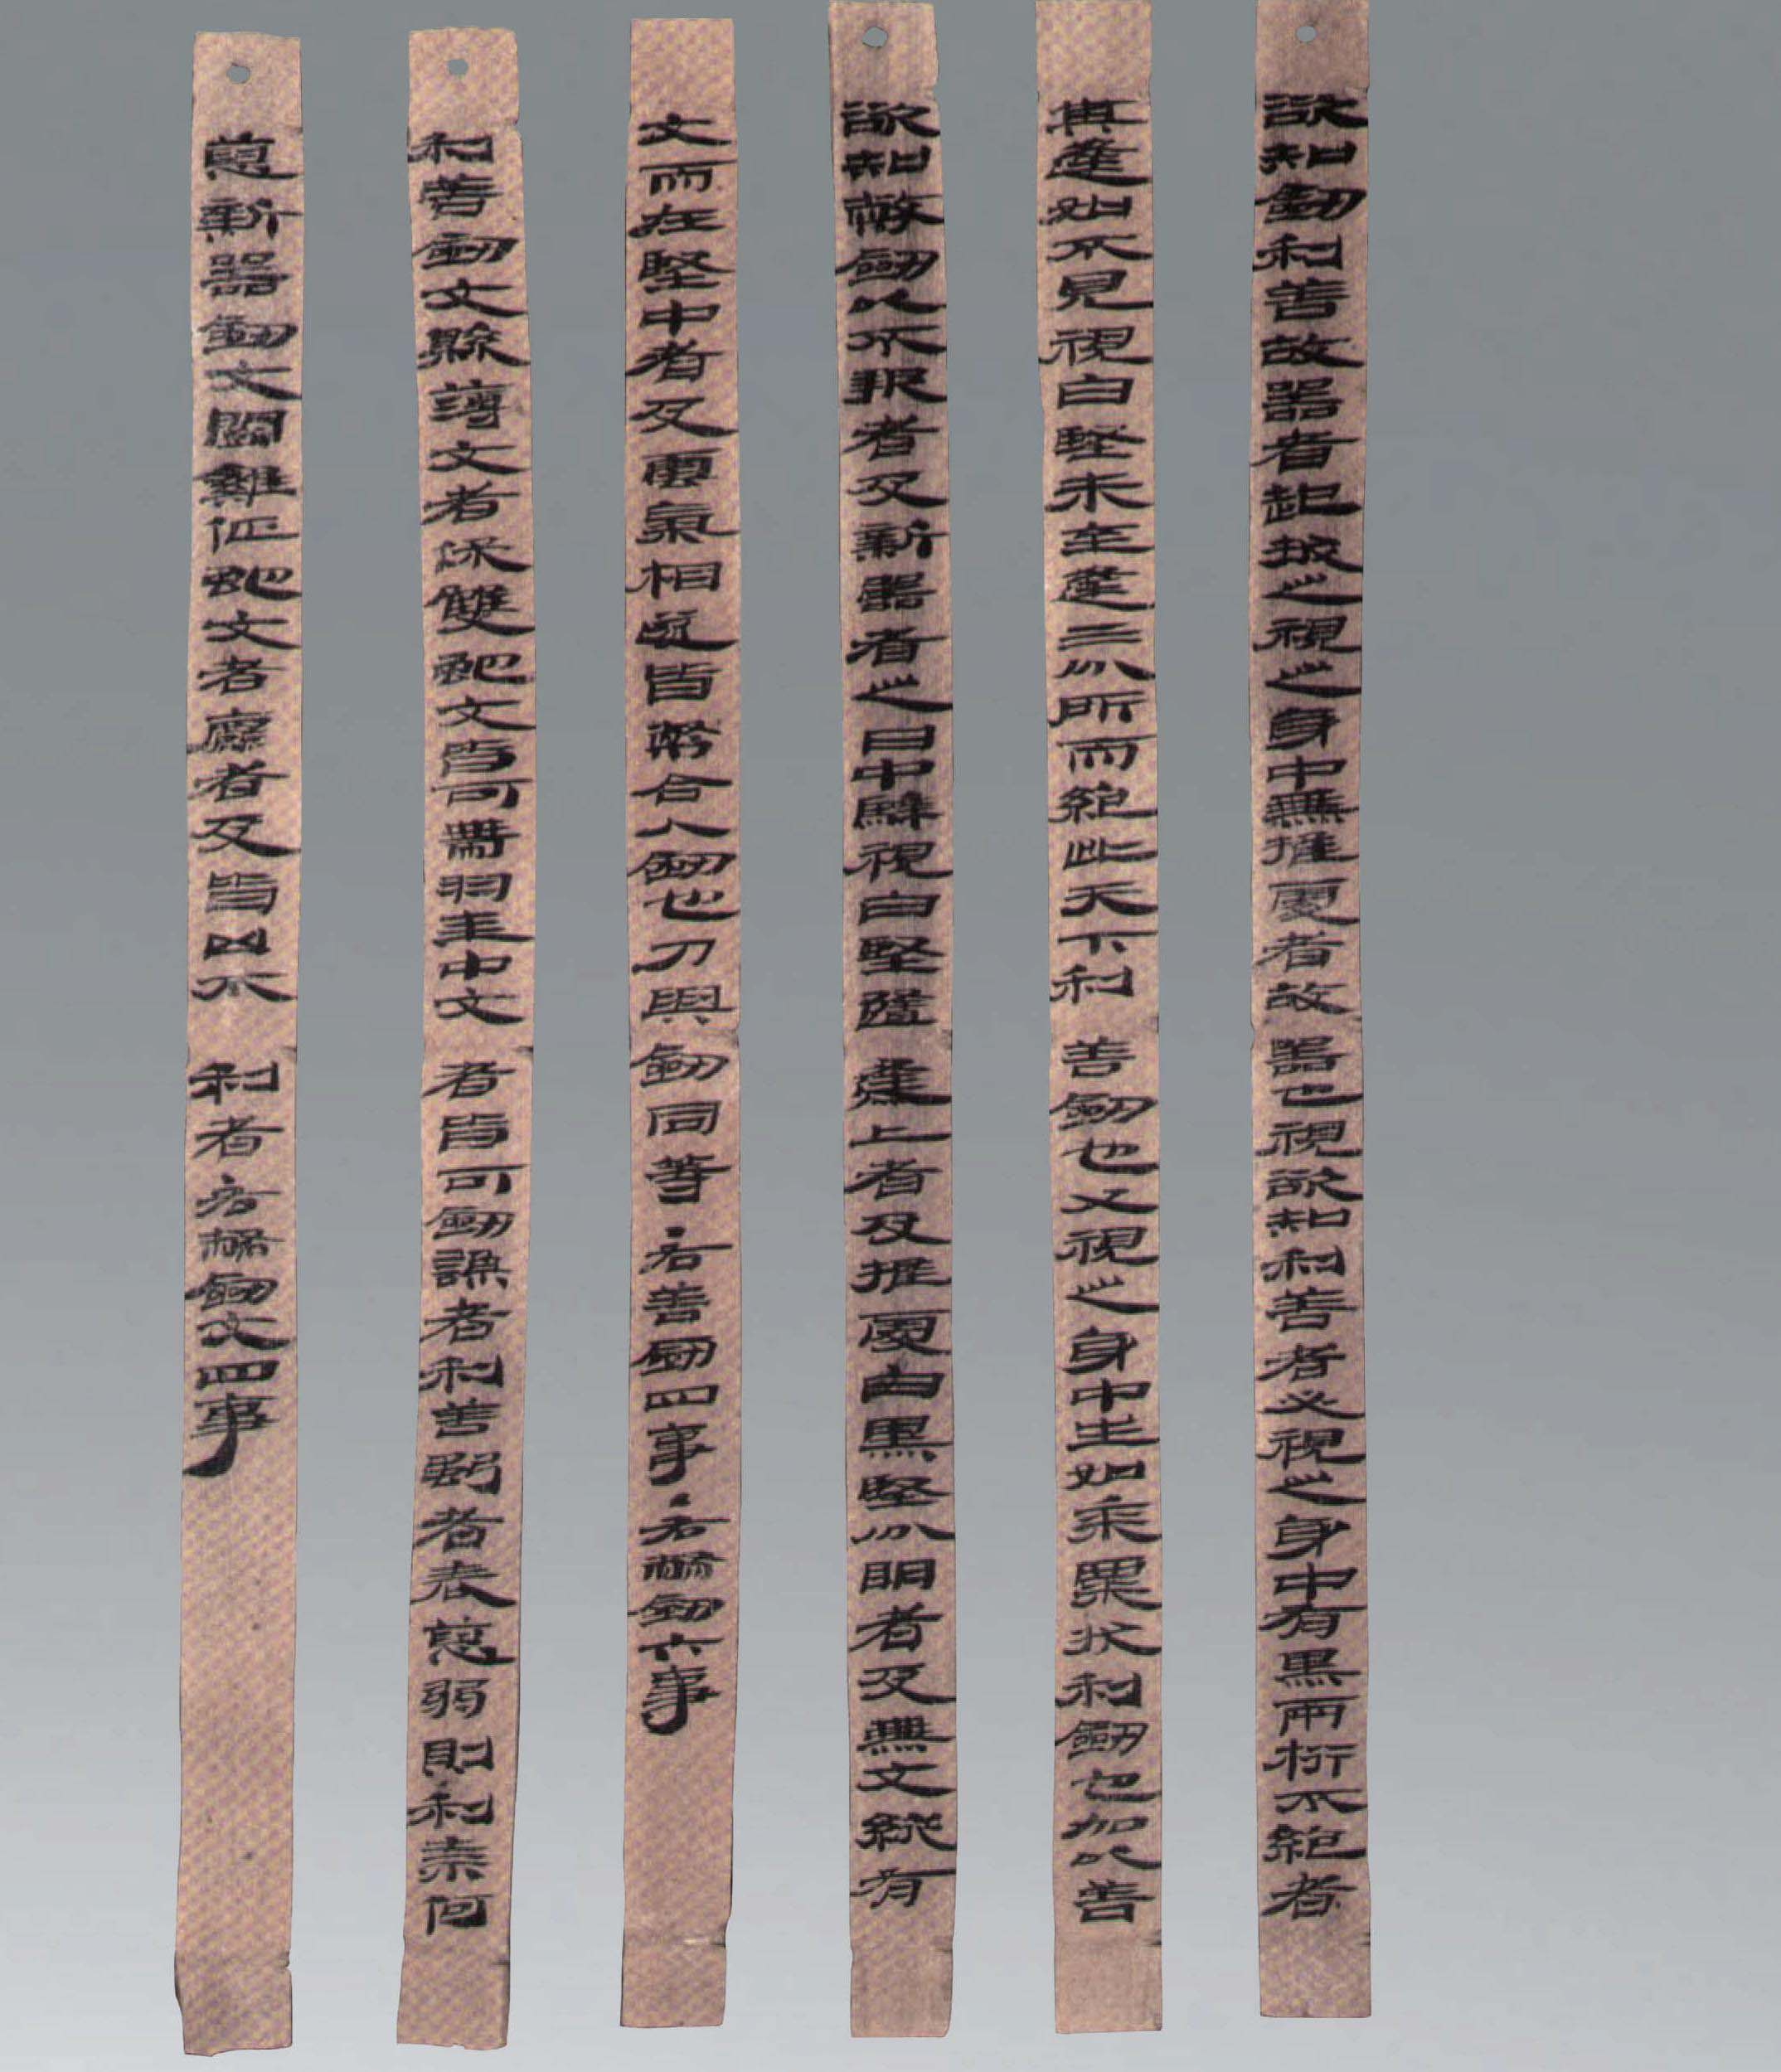 欲知劒利善故器者起拔之視之身中無推處者故器也視欲知利善者必視之身中有黑兩桁不絕者
其逢如不見視白堅未至逢三分所而絕此天下利善劒也又視之身中生如黍粟狀利劒也加以善
欲知幣劒以不報者及新器者之日中騂視白堅隨逢上者及推處白黑堅分明者及無文縱有
文而在堅中者及雲氣相遂皆幣合人劒也刀與劒同等·右善劒四事·右幣劒六事
利善劒文縣薄文者保雙蛇文皆可帶羽圭中文者皆可劒謙者利善強者表恿弱則利奈何
恿新器劒文鬭雞佂蛇文者麤者及皆凶不利者右幣劒文四事